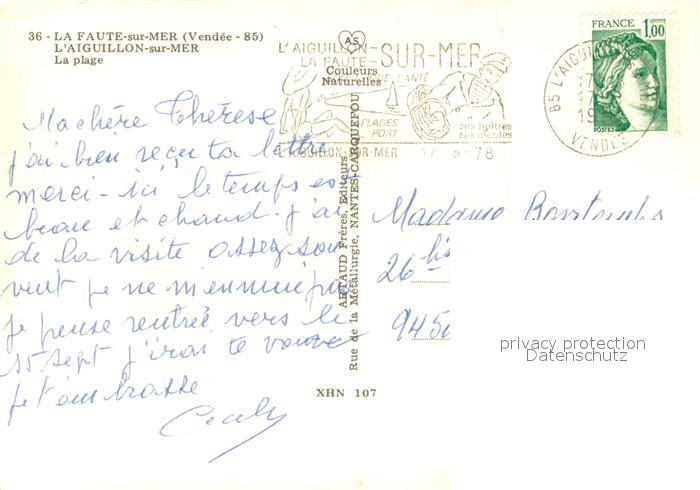 36 - LA FAUTE-sur-MER (Vendée - 85)
L'AIGUILLON-sur-MER
La plage
AS
Couleurs
Naturelles
L'AIGUILLON-
LA FAUTE-
SUR-MER
DE SANTÉ
PLAGES
PORT
ses huîtres
ses moules
L'AIGUILLON-SUR-MER 78
85 L'AIGUI
VENDÉE
FRANCE
1,00
POSTES
Ma chère Thérèse
j'ai bien reçu ta lettre
merci - ici le temps es
beau et chaud. j'ai
de la visite assez sou
vent je ne m'ennuie pas
je pense rentrée vers le
15 sept j'irai te
je t'embrasse
ARTAUD Frères, Editeurs
Rue de la Métallurgie, NANTES-CARQUEFOU
XHN 107
Madame
26 bis
945
privacy protection
Datenschutz